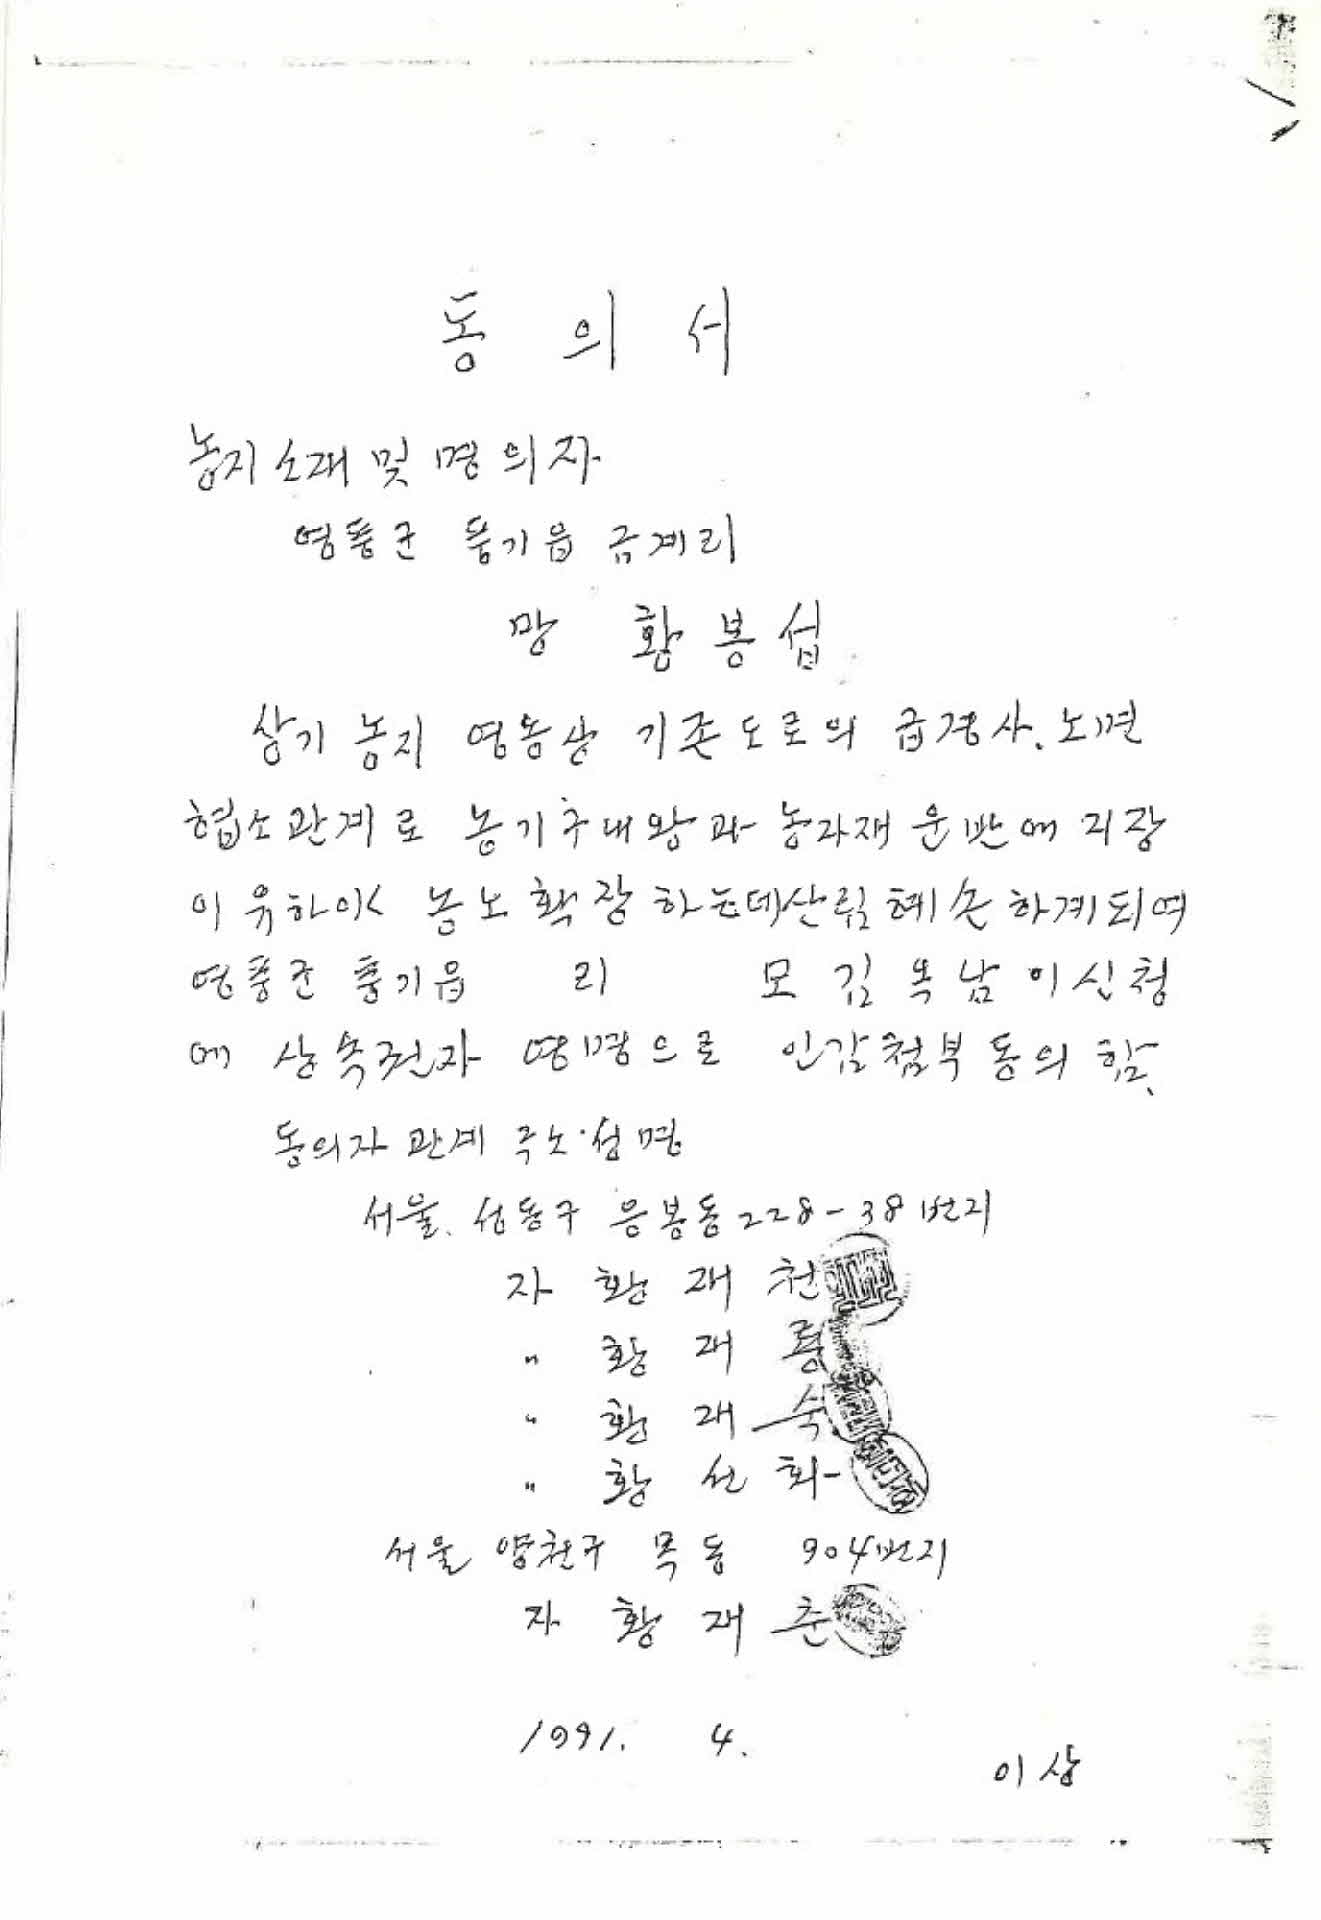 동 의 서
농지 소재 및 명의자
영풍군 풍기읍 금계리
망 황봉섭
상기 농지 영농상 기존도로의 급경사. 노면
협소관계로 농기구내왕과 농자재 운반에 지장
이 유하야 농노확장하는데 산림훼손하게되여
영풍군 풍기읍 리 모 김옥남이 신청
에 상속권자 연명으로 인감첨부 동의함.
동의자 관계 주소·성명
서울. 성동구 응봉동 228-38번지
자 황재천
" 황재
" 황재숙
" 황선희
서울 양천구 목동 904번지
자 황재춘
1991. 4.
이상